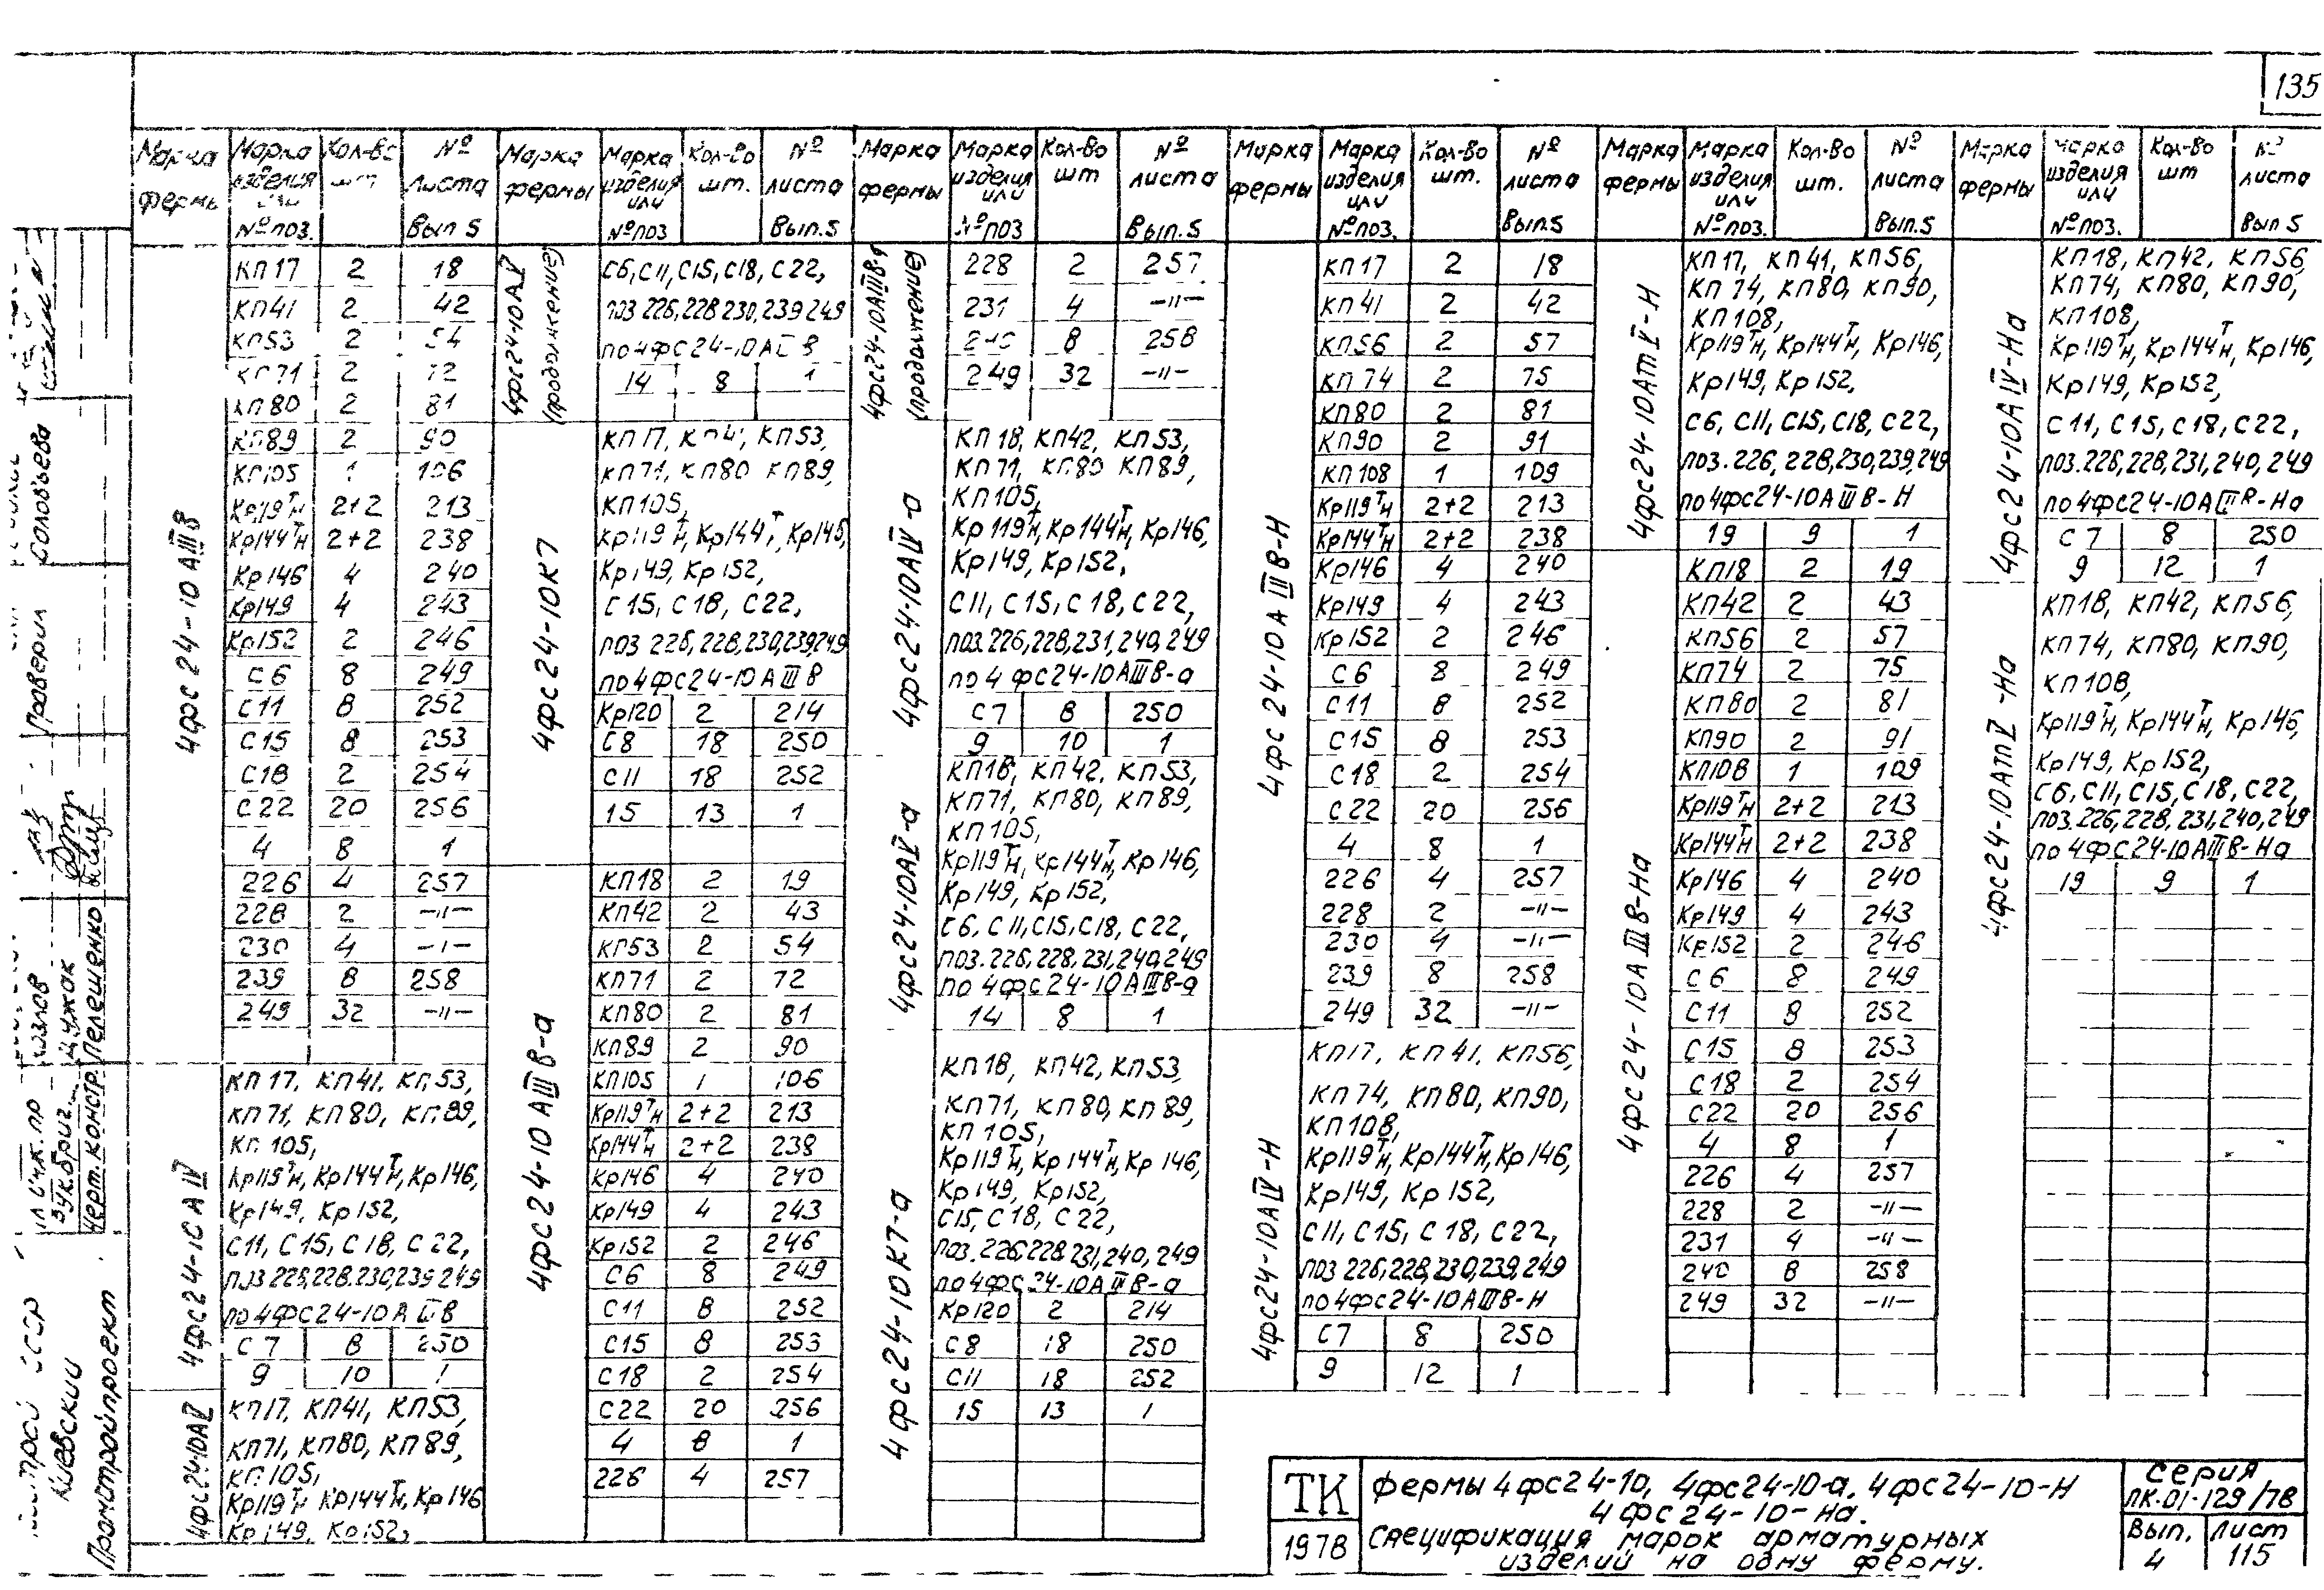 135
Марка фермы | Марка изделия или №поз. | Кол-во шт | № листа Вып 5
4фс24-10АIIIв
КП17 2 18
КП41 2 42
КП53 2 54
КП71 2 72
КП80 2 81
КП89 2 90
КП105 1 106
Кр119т н 2+2 213
Кр144т н 2+2 238
Кр146 4 240
Кр149 4 243
Кр152 2 246
С6 8 249
С11 8 252
С15 8 253
С18 2 254
С22 20 256
4 8 1
226 4 257
228 2 –"–
230 4 –"–
239 8 258
249 32 –"–
4фс24-10АIV
КП17, КП41, КП53,
КП71, КП80, КП89,
КП105,
Кр119т н, Кр144т н, Кр146,
Кр149, Кр152,
С11, С15, С18, С22,
поз 226,228,230,239,249
по 4фс24-10АIIIв
С7 8 250
9 10 1
4фс24-10АV
КП17, КП41, КП53,
КП71, КП80, КП89,
КП105,
Кр119т н Кр144т н, Кр146
Кр149, Кр152,
Марка фермы | Марка изделия или №поз | Кол-во шт. | № листа Вып.5
4фс24-10АV (продолжение)
С6, С11, С15, С18, С22,
поз 226,228,230,239 249
по 4фс24-10АIIIв
14 8 1
4фс24-10К7
КП17, КП41, КП53,
КП71, КП80 КП89,
КП105,
Кр119т н, Кр144т, Кр146,
Кр149, Кр152,
С15, С18, С22,
поз 226,228,230,239,249
по 4фс24-10АIIIв
Кр120 2 214
С8 18 250
С11 18 252
15 13 1
4фс24-10АIIIв-а
КП18 2 19
КП42 2 43
КП53 2 54
КП71 2 72
КП80 2 81
КП89 2 90
КП105 1 106
Кр119т н 2+2 213
Кр144т н 2+2 238
Кр146 4 240
Кр149 4 243
Кр152 2 246
С6 8 249
С11 8 252
С15 8 253
С18 2 254
С22 20 256
4 8 1
226 4 257
Марка фермы | Марка изделия или №поз | Кол-во шт | № листа Вып.5
4фс24-10АIIIв-а (продолжение)
228 2 257
231 4 –"–
240 8 258
249 32 –"–
4фс24-10АIV-а
КП18, КП42, КП53,
КП71, КП80 КП89,
КП105,
Кр119т н, Кр144т н, Кр146,
Кр149, Кр152,
С11, С15, С18, С22,
поз.226,228,231,240,249
по 4фс24-10АIIIв-а
С7 8 250
9 10 1
4фс24-10АV-а
КП18, КП42, КП53,
КП71, КП80, КП89,
КП105,
Кр119т н, Кр144т н, Кр146,
Кр149, Кр152,
С6, С11, С15, С18, С22,
поз.226,228,231,240,249
по 4фс24-10АIIIв-а
14 8 1
4фс24-10К7-а
КП18, КП42, КП53,
КП71, КП80, КП89,
КП105,
Кр119т н, Кр144т н, Кр146,
Кр149, Кр152,
С15, С18, С22,
поз.226,228,231,240,249
по 4фс24-10АIIIв-а
Кр120 2 214
С8 18 250
С11 18 252
15 13 1
Марка фермы | Марка изделия или №поз. | Кол-во шт. | № листа Вып.5
4фс24-10АIIIв-Н
КП17 2 18
КП41 2 42
КП56 2 57
КП74 2 75
КП80 2 81
КП90 2 91
КП108 1 109
Кр119т н 2+2 213
Кр144т н 2+2 238
Кр146 4 240
Кр149 4 243
Кр152 2 246
С6 8 249
С11 8 252
С15 8 253
С18 2 254
С22 20 256
4 8 1
226 4 257
228 2 –"–
230 4 –"–
239 8 258
249 32 –"–
4фс24-10АIV-Н
КП17, КП41, КП56,
КП74, КП80, КП90,
КП108,
Кр119т н, Кр144т н, Кр146,
Кр149, Кр152,
С11, С15, С18, С22,
поз 226,228,230,239,249
по 4фс24-10АIIIв-Н
С7 8 250
9 12 1
Марка фермы | Марка изделия или №поз. | Кол-во шт. | № листа Вып.5
4фс24-10АтV-Н
КП17, КП41, КП56,
КП74, КП80, КП90,
КП108,
Кр119т н, Кр144т н, Кр146,
Кр149, Кр152,
С6, С11, С15, С18, С22,
поз.226,228,230,239,249
по 4фс24-10АIIIв-Н
19 9 1
4фс24-10АIIIв-На
КП18 2 19
КП42 2 43
КП56 2 57
КП74 2 75
КП80 2 81
КП90 2 91
КП108 1 109
Кр119т н 2+2 213
Кр144т н 2+2 238
Кр146 4 240
Кр149 4 243
Кр152 2 246
С6 8 249
С11 8 252
С15 8 253
С18 2 254
С22 20 256
4 8 1
226 4 257
228 2 –"–
231 4 –"–
240 8 258
249 32 –"–
Марка фермы | Марка изделия или №поз. | Кол-во шт | № листа Вып 5
4фс24-10АIV-На
КП18, КП42, КП56,
КП74, КП80, КП90,
КП108,
Кр119т н, Кр144т н, Кр146,
Кр149, Кр152,
С11, С15, С18, С22,
поз.226,228,231,240,249
по 4фс24-10АIIIв-На
С7 8 250
9 12 1
4фс24-10АтV-На
КП18, КП42, КП56,
КП74, КП80, КП90,
КП108,
Кр119т н, Кр144т н, Кр146,
Кр149, Кр152,
С6, С11, С15, С18, С22,
поз.226,228,231,240,249
по 4фс24-10АIIIв-На
19 9 1
ТК
1978
Фермы 4фс24-10, 4фс24-10-а, 4фс24-10-Н
4фс24-10-На.
Спецификация марок арматурных
изделий на одну ферму.
Серия
ПК.01-129/78
Вып. 4
Лист 115
СССР
Киевский
Промстройпроект
Рук.бриг.
Черт.констр.
Чужак
Пелешенко
Проверил
Соловьева